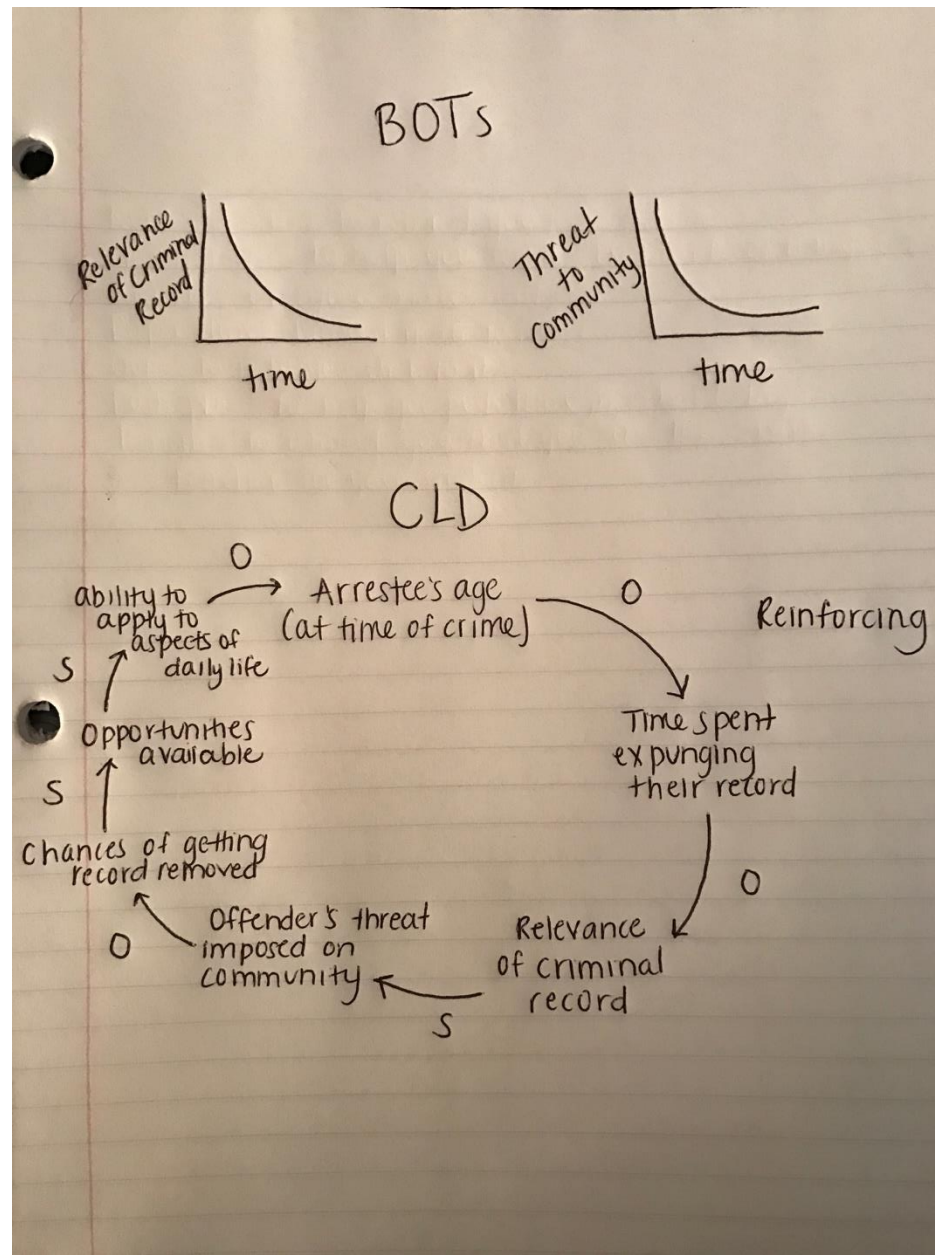 BOTs
Relevance
of Criminal
Record
time
Threat
to
Community
time
CLD
O
ability to
apply to
aspects of
daily life
Arrestee's age
(at time of crime)
O
Reinforcing
S
Opportunities
available
Time spent
expunging
their record
S
Chances of getting
record removed
O
Offender's threat
imposed on
community
O
Relevance
of criminal
record
S